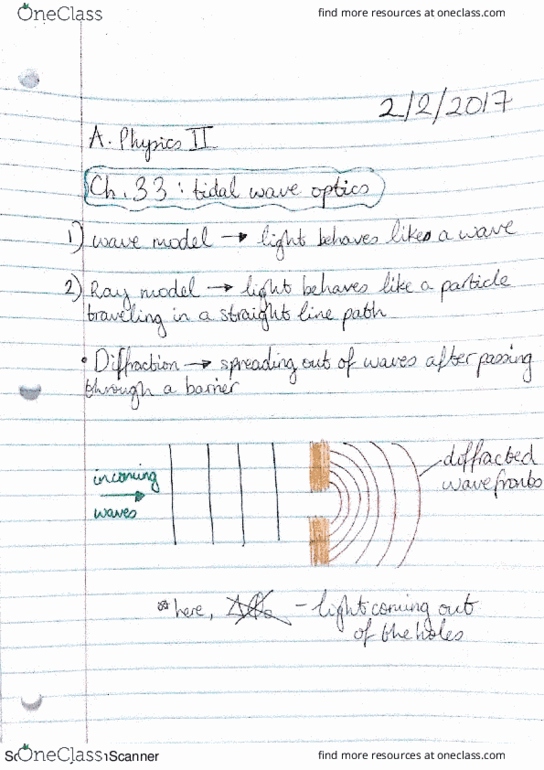 OneClass find more resources at oneclass.com
2/2/2017
A. Physics II
Ch. 33 : tidal wave optics
1) wave model → light behaves like a wave
2) Ray model → light behaves like a particle
traveling in a straight line path
• Diffraction → spreading out of waves after passing
through a barrier
incoming
waves
diffracted
wavefronts
* here, - light coming out
of the holes
OneClass Scanner find more resources at oneclass.com